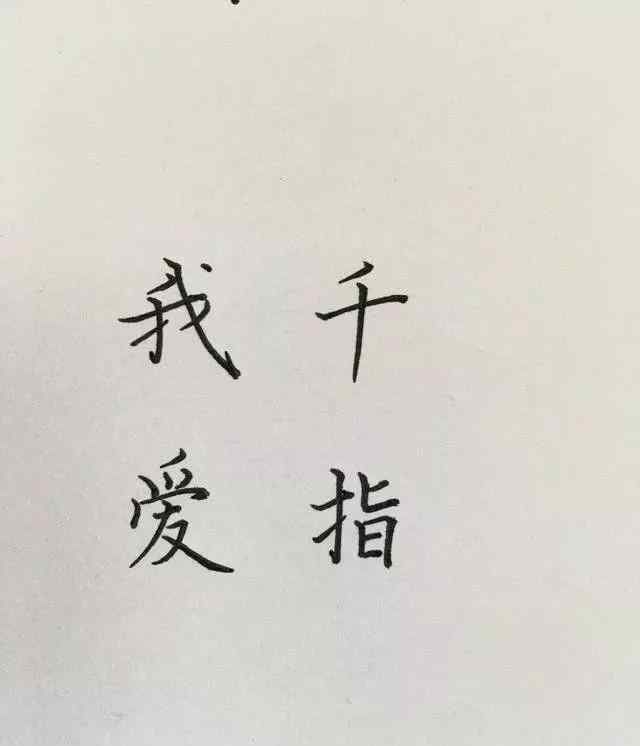 我千
爱指